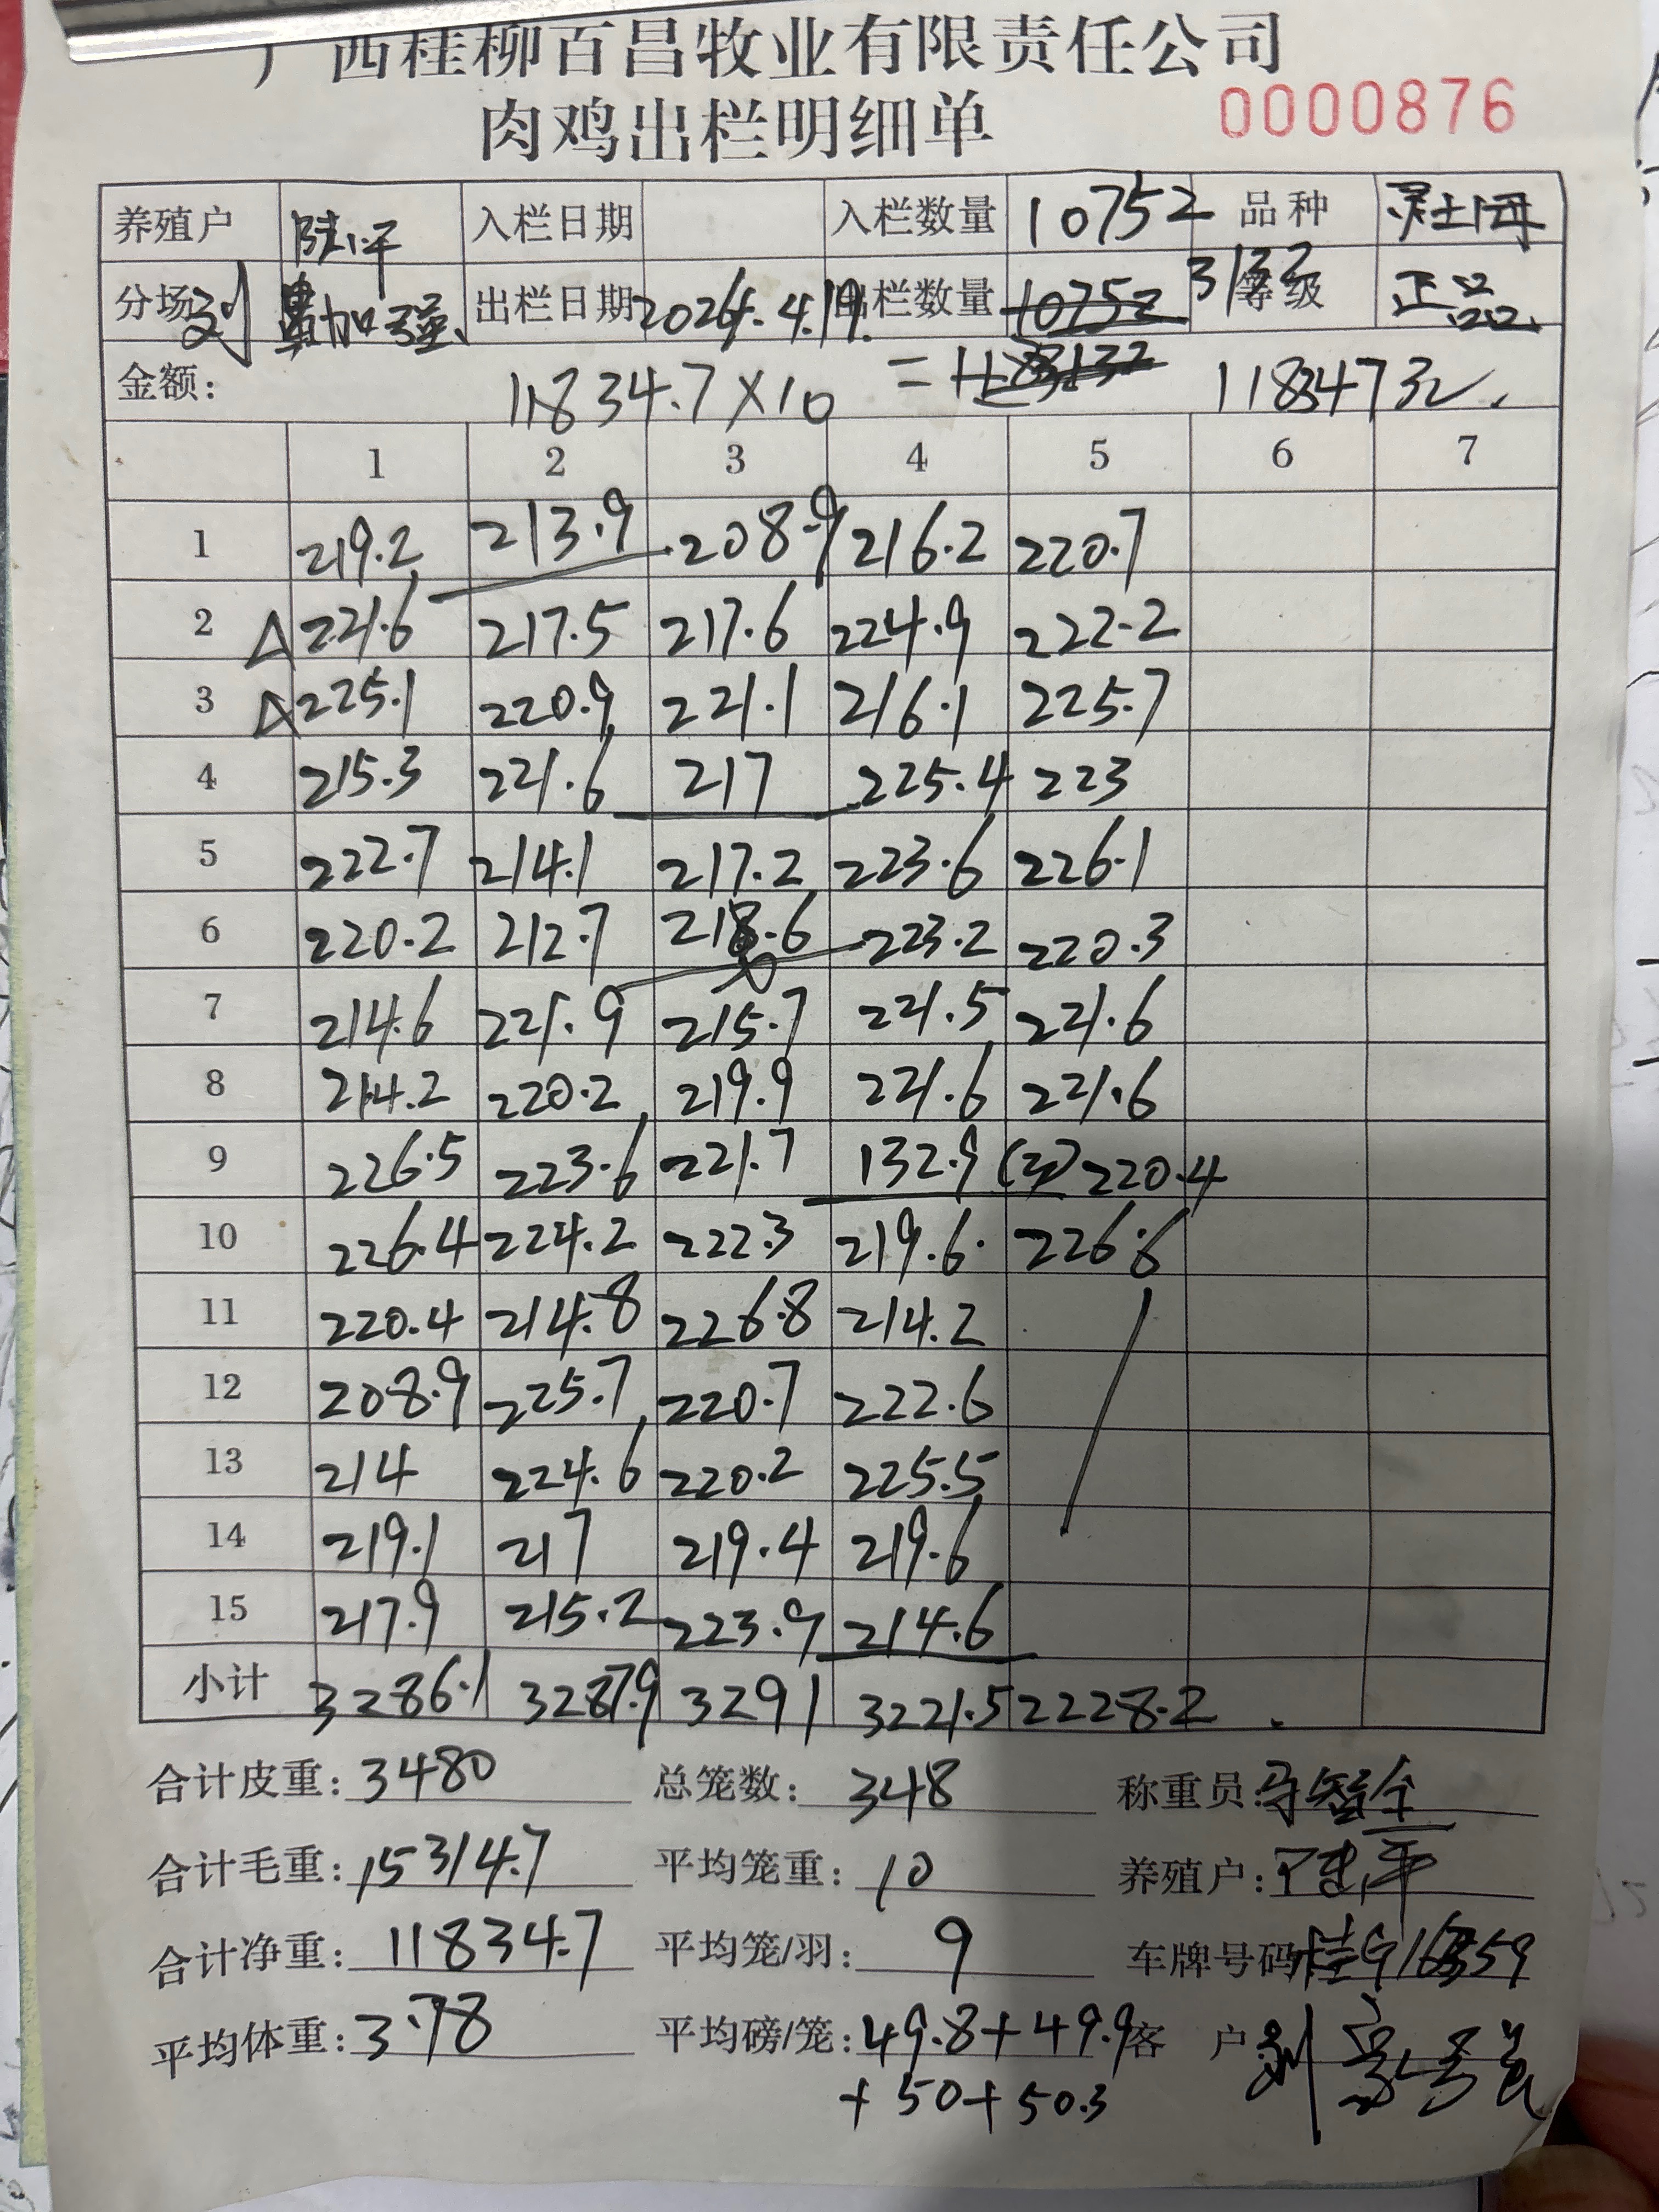 广西桂柳百昌牧业有限责任公司
肉鸡出栏明细单 0000876
养殖户 陆平 入栏日期 入栏数量 10752 品种
分场 出栏日期 2024.4.19. 出栏数量 10752 3132 等级 正品
金额: 11834.7×10 = 118347元
1 2 3 4 5 6 7
1 219.2 213.9 208.9 216.2 220.7
2 △221.6 217.5 217.6 224.9 222.2
3 △225.1 220.9 221.1 216.1 225.7
4 215.3 221.6 217 225.4 223
5 222.7 214.1 217.2 223.6 226.1
6 220.2 212.7 218.6 223.2 220.3
7 214.6 221.9 215.7 221.5 221.6
8 214.2 220.2 219.9 221.6 221.6
9 226.5 223.6 221.7 132.9 220.4
10 226.4 224.2 222.3 219.6 226.6
11 220.4 214.8 226.8 214.2
12 208.9 225.7 220.7 222.6
13 214 224.6 220.2 225.5
14 219.1 217 219.4 219.6
15 217.9 215.2 223.9 214.6
小计 3286.1 3287.9 3291 3221.5 2228.2
合计皮重: 3480 总笼数: 348 称重员:
合计毛重: 15314.7 平均笼重: 10 养殖户: 陆平
合计净重: 11834.7 平均笼/羽: 9 车牌号码
平均体重: 3.78 平均磅/笼: 49.8+49.9 客 户
+50+50.3